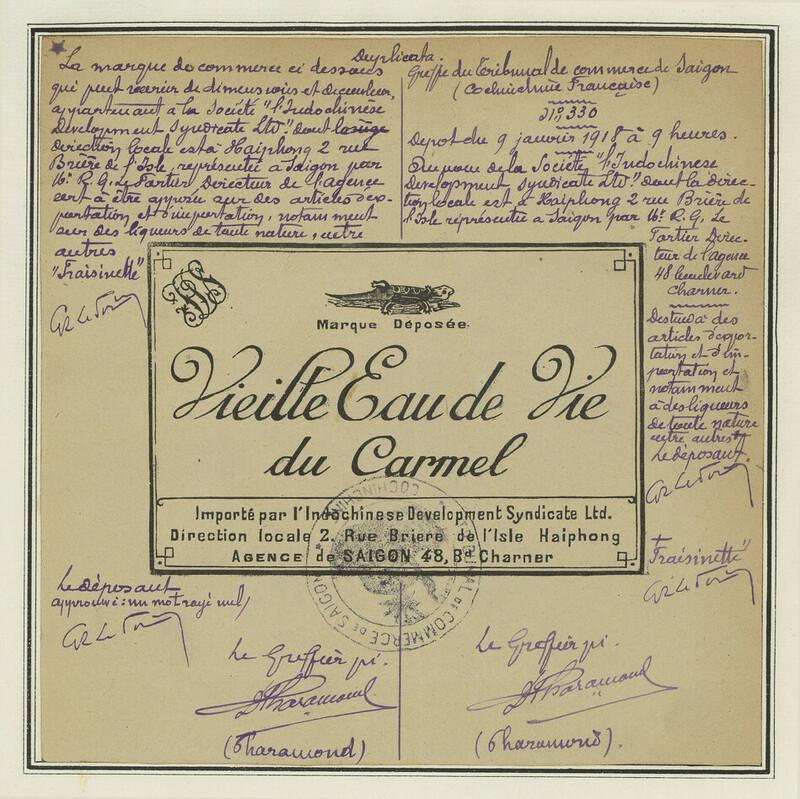 Duplicata.
La marque de commerce ci dessous
qui peut varier de dimensions et de couleur,
appartenant à la Société "l'Indochinese
Development Syndicate Ltd." dont la
direction locale est à Haïphong 2 rue
Brière de l'Isle, représentée à Saigon par
Mr. R. G. Le Tartier Directeur de l'agence
sert à être apposée sur des articles d'ex-
portation et d'importation, notamment
sur des liqueurs de toute nature, entre
autres
"Fraisinette"
Greffe du Tribunal de commerce de Saïgon
(Cochinchine Française)
330
Depot du 9 janvier 1918 à 9 heures.
Au nom de la Société "l'Indochinese
Development Syndicate Ltd." dont la direc-
tion locale est à Haïphong 2 rue Brière de
l'Isle représentée à Saïgon par Mr. R. G. Le
Tartier Direc-
teur de l'agence
48 boulevard
Charner.
Destiné à des
articles d'expor-
tation et d'im-
portation et
notamment
à des liqueurs
de toute nature
entre autres
Le déposant.
"Fraisinette"
Marque Déposée
Vieille Eau de Vie
du Carmel
Importé par l'Indochinese Development Syndicate Ltd.
Direction locale 2. Rue Briere de l'Isle Haiphong
AGENCE de SAIGON 48, Bd Charner
TRIBUNAL DE COMMERCE DE SAIGON
COCHINCHINE
Le déposant
approuvé: un mot rayé nul,
Le Greffier pi.
Pharamond
(Pharamond)
Le Greffier pi.
Pharamond
(Pharamond).